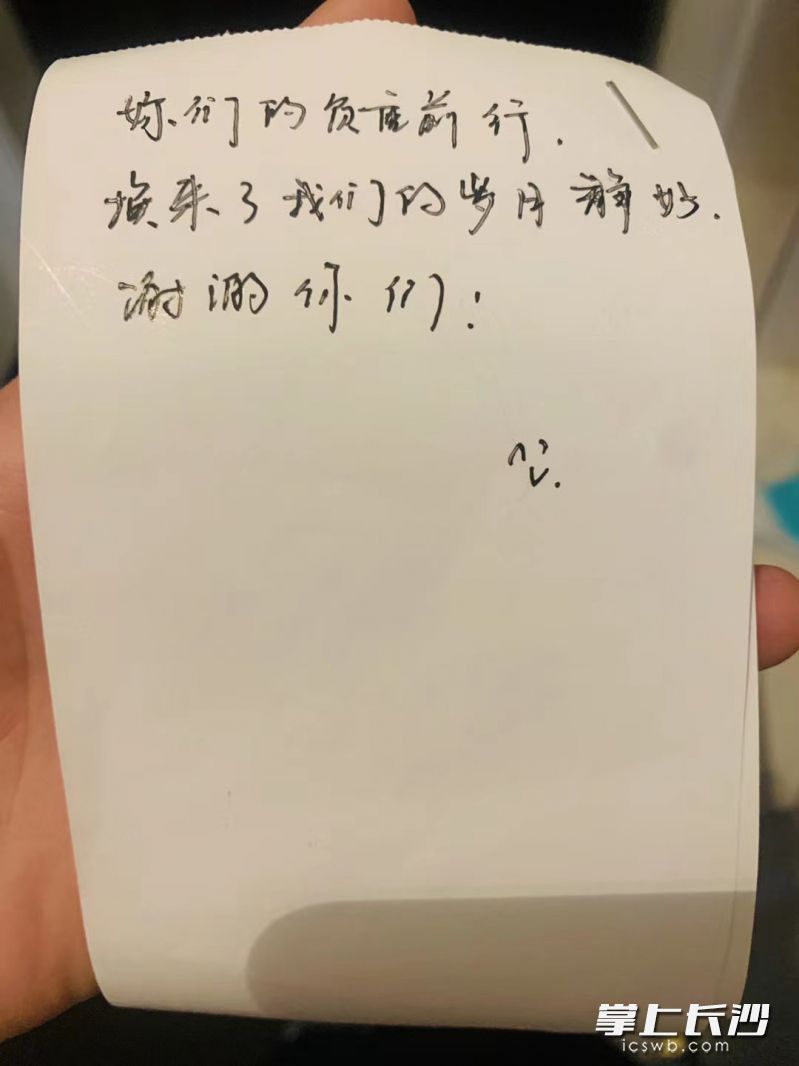 妳们的负重前行.
换来了我们的岁月静好.
谢谢你们!
掌上长沙
icswb.com